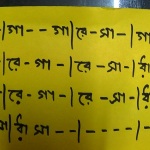 |গা - - গা|রে - সা - |গা
|রে - গা - |রে - সা - |রাঁ
|রে - গা - |রে - সা - |রাঁ
|রাঁ সা - - |- - - - |-